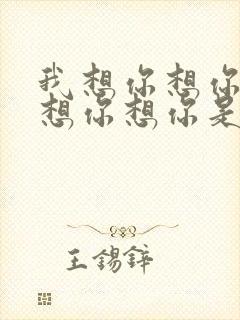 我想你想你
想你想你是
王锡锌